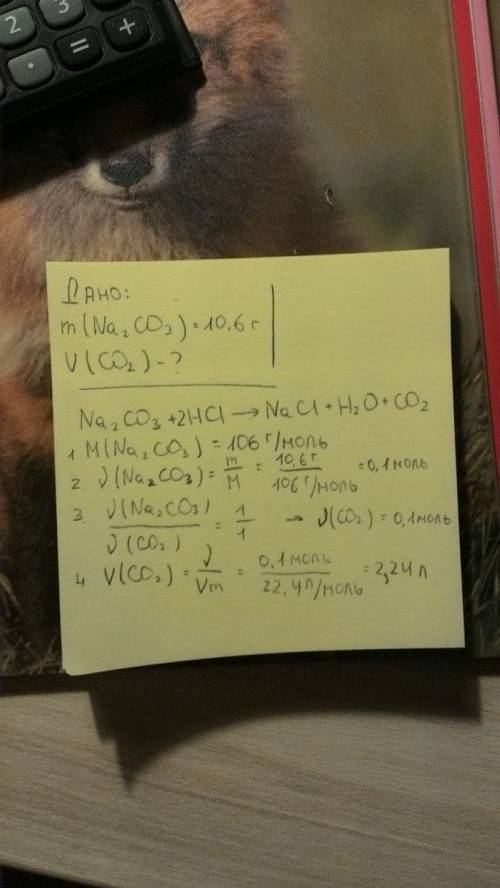 2 3
= +
·
Дано:
m(Na₂CO₃)=10,6 г
V(CO₂)-?
Na₂CO₃+2HCl→NaCl+H₂O+CO₂
1 M(Na₂CO₃)=106 г/моль
2. ν(Na₂CO₃)=m/M=10,6 г/106 г/моль=0,1 моль
3. ν(Na₂CO₃)/ν(CO₂)=1/1 → ν(CO₂)=0,1 моль
4. V(CO₂)=ν/Vm=0,1 моль/22,4 л/моль=2,24 л